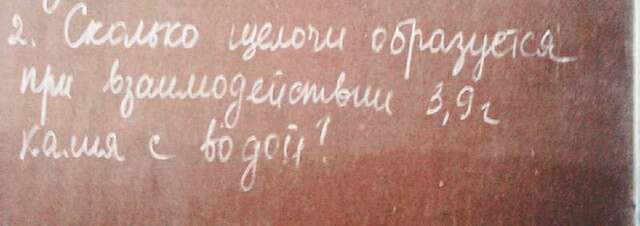 2. Сколько щелочи образуется
при взаимодействии 3,9 г
калия с водой?